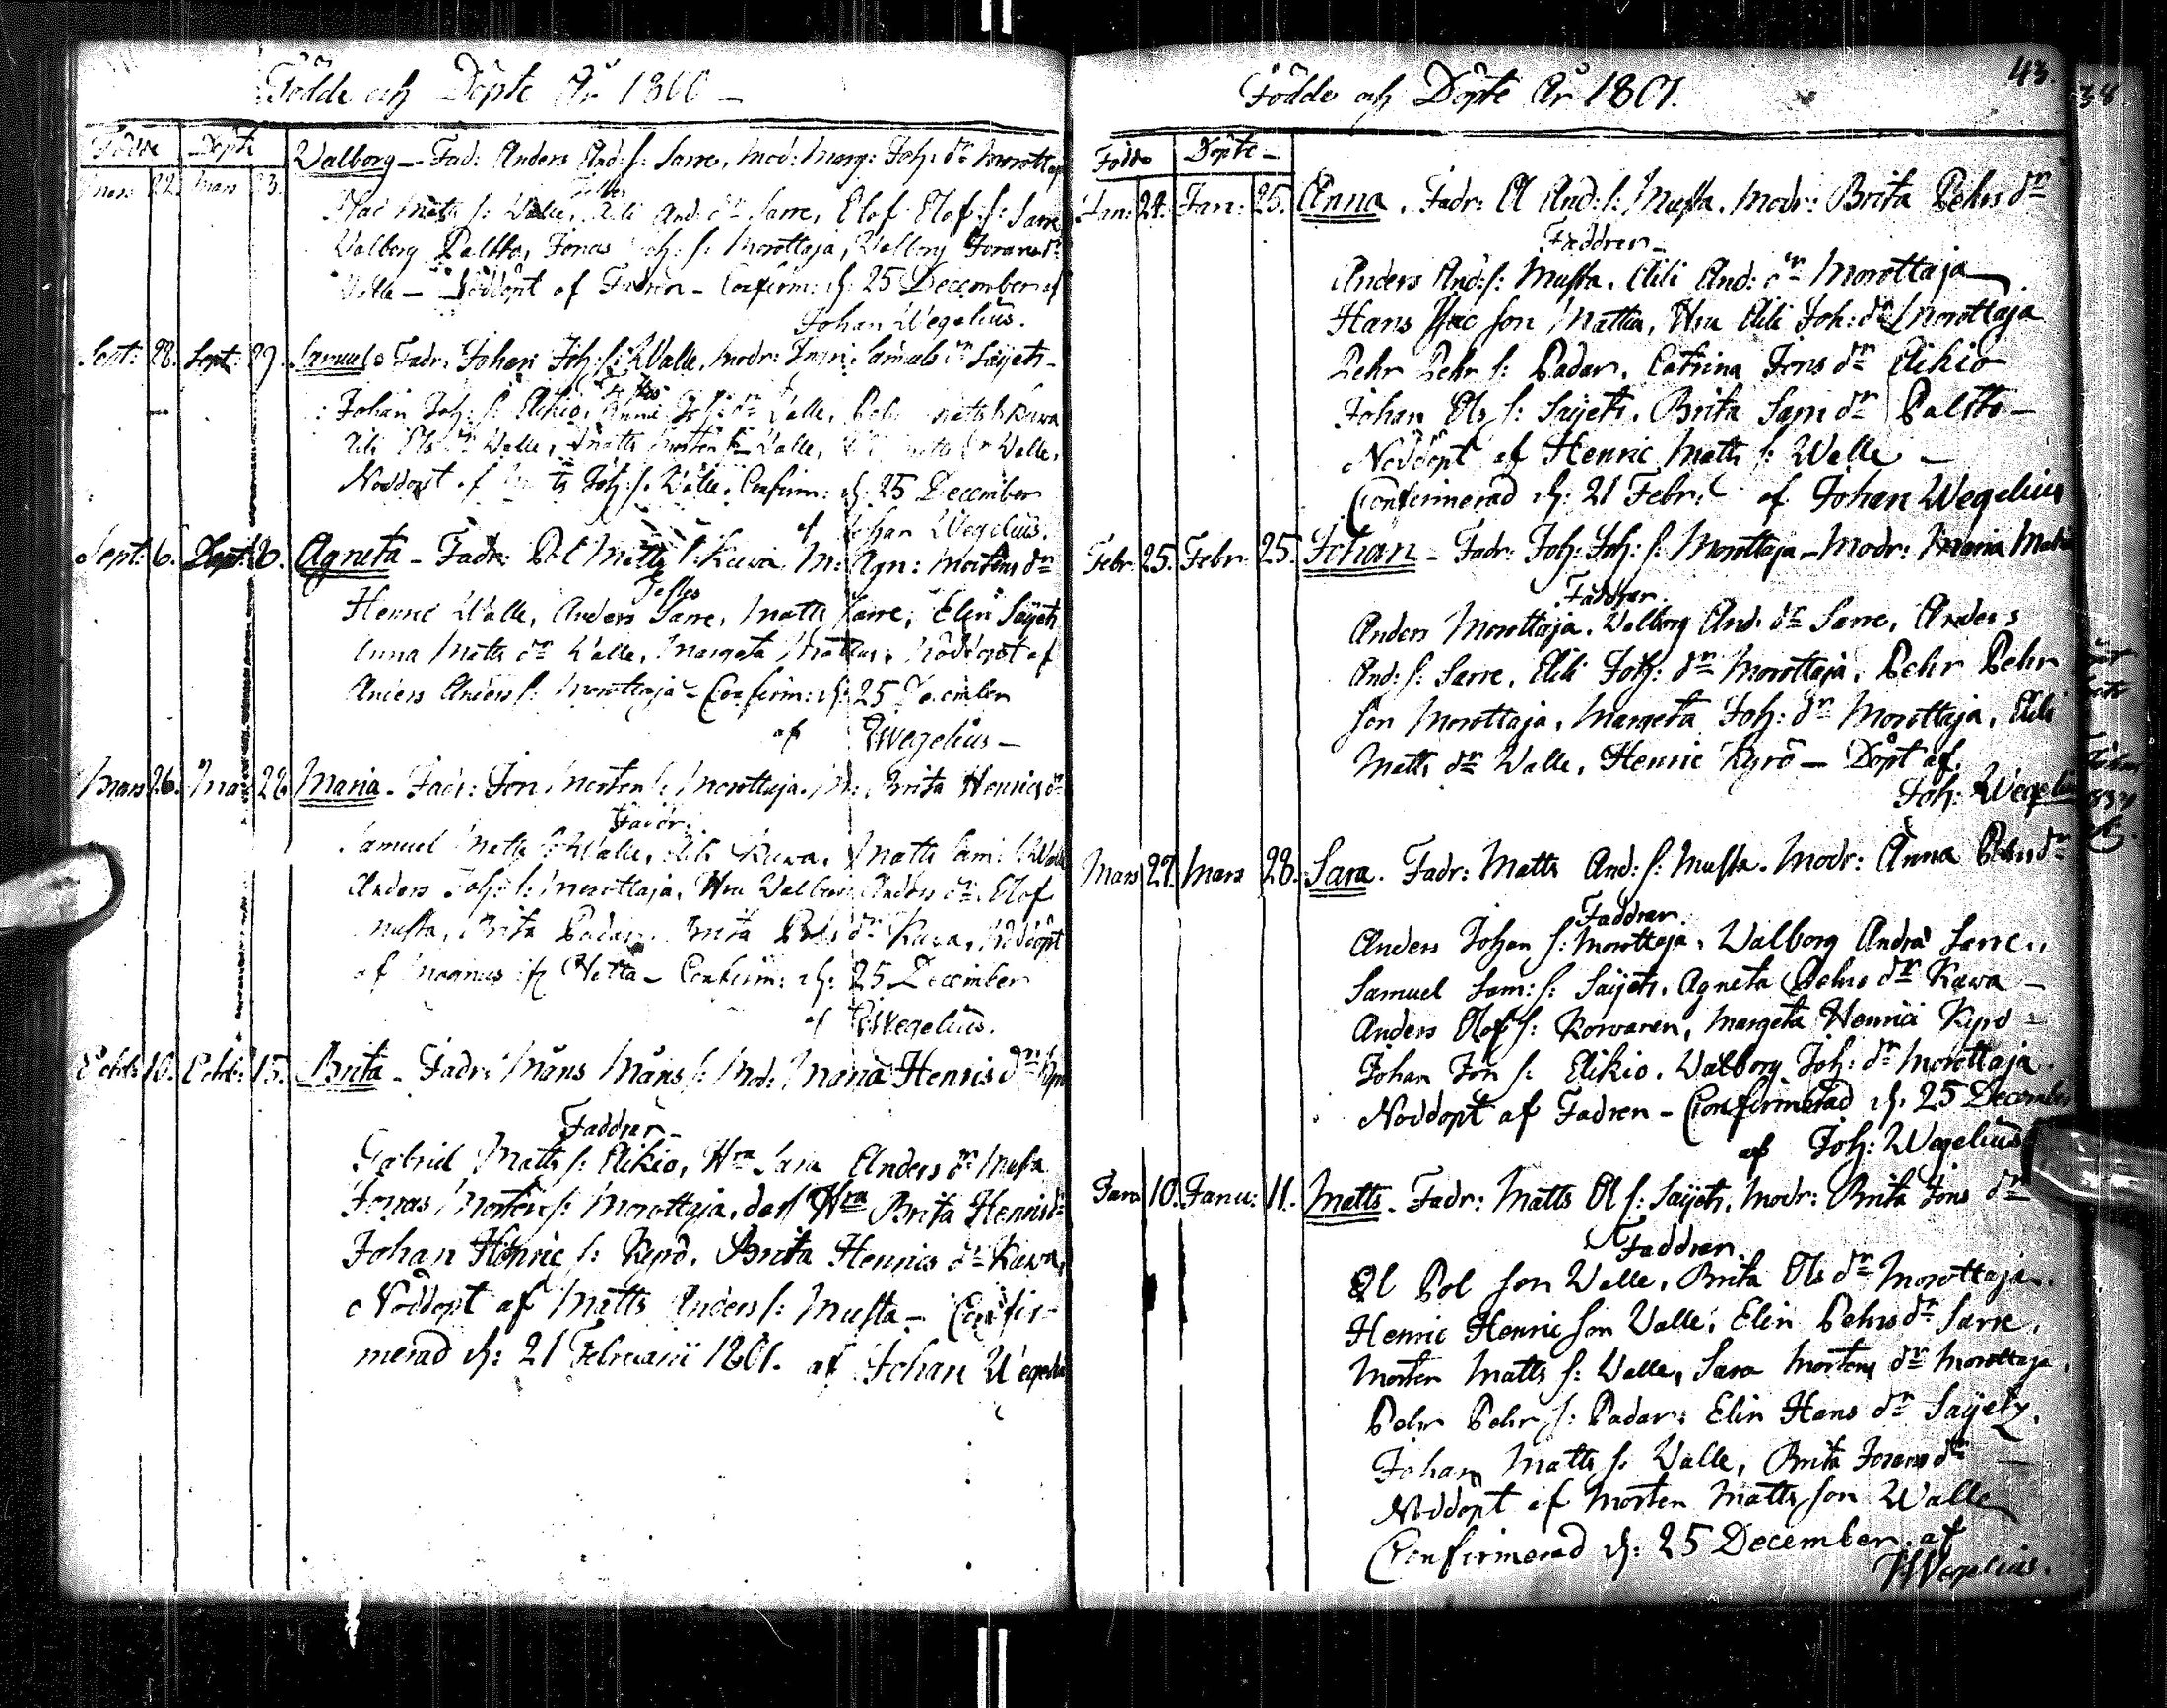 Födde och Döpte År 1800 –
Födde Döpte
Mars 22. Mars 23. Walborg – Fad: Anders And: s: Sarre, Mod: Marg: Joh: dr Morottaja
Testes
Matts s: Walle, Aili And: dr Sarre, Elof Elof s: Sarre
Walborg Paltto, Jonas Joh: s: Morottaja, Walborg
Walle – Nöddöpt af Fadren – Confirm: d: 25 December af
Johan Wegelius.
Sept: 28. Sept: 29. Samuel Fadr: Johan Joh: s: Walle, Modr: Samuels dr Saijets –
Testes
Johan Joh: s: Aikio, Anna Joh: dr Walle, Matts s Kuwa
Aili Ols dr Walle, Matts Morten s Walle, Walle,
Nöddöpt af Joh: s: Walle, Confirm: d: 25 December
af Johan Wegelius.
Sept: 6. Sept: 8. Agneta – Fadr: Pol Matts s: Kuwa M: Agn: Mortens dr
Testes
Henric Walle, Anders Sarre, Matts Sarre, Elin Saijets
Anna Matts dr Walle, Margeta Nöddöpt af
Anders Anders s: Morottaja – Confirm: d: 25 December
af Wegelius –
Mars 26. Mars Maria – Fadr: Jon Morten s: Morottaja. M: Brita Henrics dr
Faddr:
Samuel Matts s: Walle, Aili Kuwa, Matts Sam: s: Walle
Anders Joh: s: Morottaja, Hru Walborg Anders dr, Olof
Musta, Brita Padar, Brita Pols dr Kuwa, Nöddöpt
af Magnus Hetta – Confirm: d: 25 December
af Wegelius.
Octob: 10. Octob: 15. Brita – Fadr: Måns Måns s: Mod: Maria Henrics dr Kyrö
Faddrar –
Gabriel Matts s: Aikio, Hra Sara Anders dr Musta
Jonas Morten s: Morottaja, des Hra Brita Henrics dr
Johan Henric s: Kyrö, Brita Henrics dr Kuwa,
Nöddöpt af Matts Anders s: Musta – Confir-
merad d: 21 Februarii 1801. af Johan Wegelius
43.
Födde och Döpte År 1801.
Födde Döpte –
Jan: 24. Jan: 25. Anna. Fadr: Ol And: s: Musta. Modr: Brita Pehrs dr
Faddrar –
Anders And: s: Musta. Aili And: dr Morottaja
Hans son Mattus, Hru Aili Joh: dr Morottaja
Pehr Pehr s: Padar. Catrina Jons dr Aikio
Johan Ols s: Saijets. Brita Sam dr Paltto –
Nöddöpt af Henric Matts s: Walle –
Confirmerad d: 21 Febr: af Johan Wegelius
Febr: 25. Febr: 25. Johan – Fadr: Joh: Joh: s: Morottaja – Modr: Maria
Faddrar.
Anders Morottaja. Walborg And: dr Sarre, Anders
And: s: Sarre, Aili Joh: dr Morottaja, Pehr Pehr
son Morottaja, Margeta Joh: dr Morottaja, Aili
Matts dr Walle, Henric Kyrö – Döpt af
Joh: Wegelius
Mars 27. Mars 28. Sara. Fadr: Matts And: s: Musta. Modr: Anna Pehrs dr
Faddrar.
Anders Johan s: Morottaja, Walborg Andra Sarre.,
Samuel Sam: s: Saijets, Agneta Pehrs dr Kuwa –
Anders Olof s: Korvanen, Margeta Henrici Kyrö –
Johan Jon s: Aikio. Walborg Joh: dr Morottaja.
Nöddöpt af Fadren – Confirmerad d: 25 December
af Joh: Wegelius
Janu: 10. Janu: 11. Matts – Fadr: Matts Ol s: Saijets. Modr: Brita Jons dr
Faddrar.
Ol Pol son Walle, Brita Ols dr Morottaja.
Henric Henric son Walle, Elin Pehrs dr Sarre.
Morten Matts s: Walle, Sara Mortens dr Morottaja.
Pehr Pehr s: Padar: Elin Hans dr Saijets.
Johan Matts s: Walle, Brita dr –
Nöddöpt af Morten Matts son Walle
Confirmerad d: 25 December. af
Wegelius.